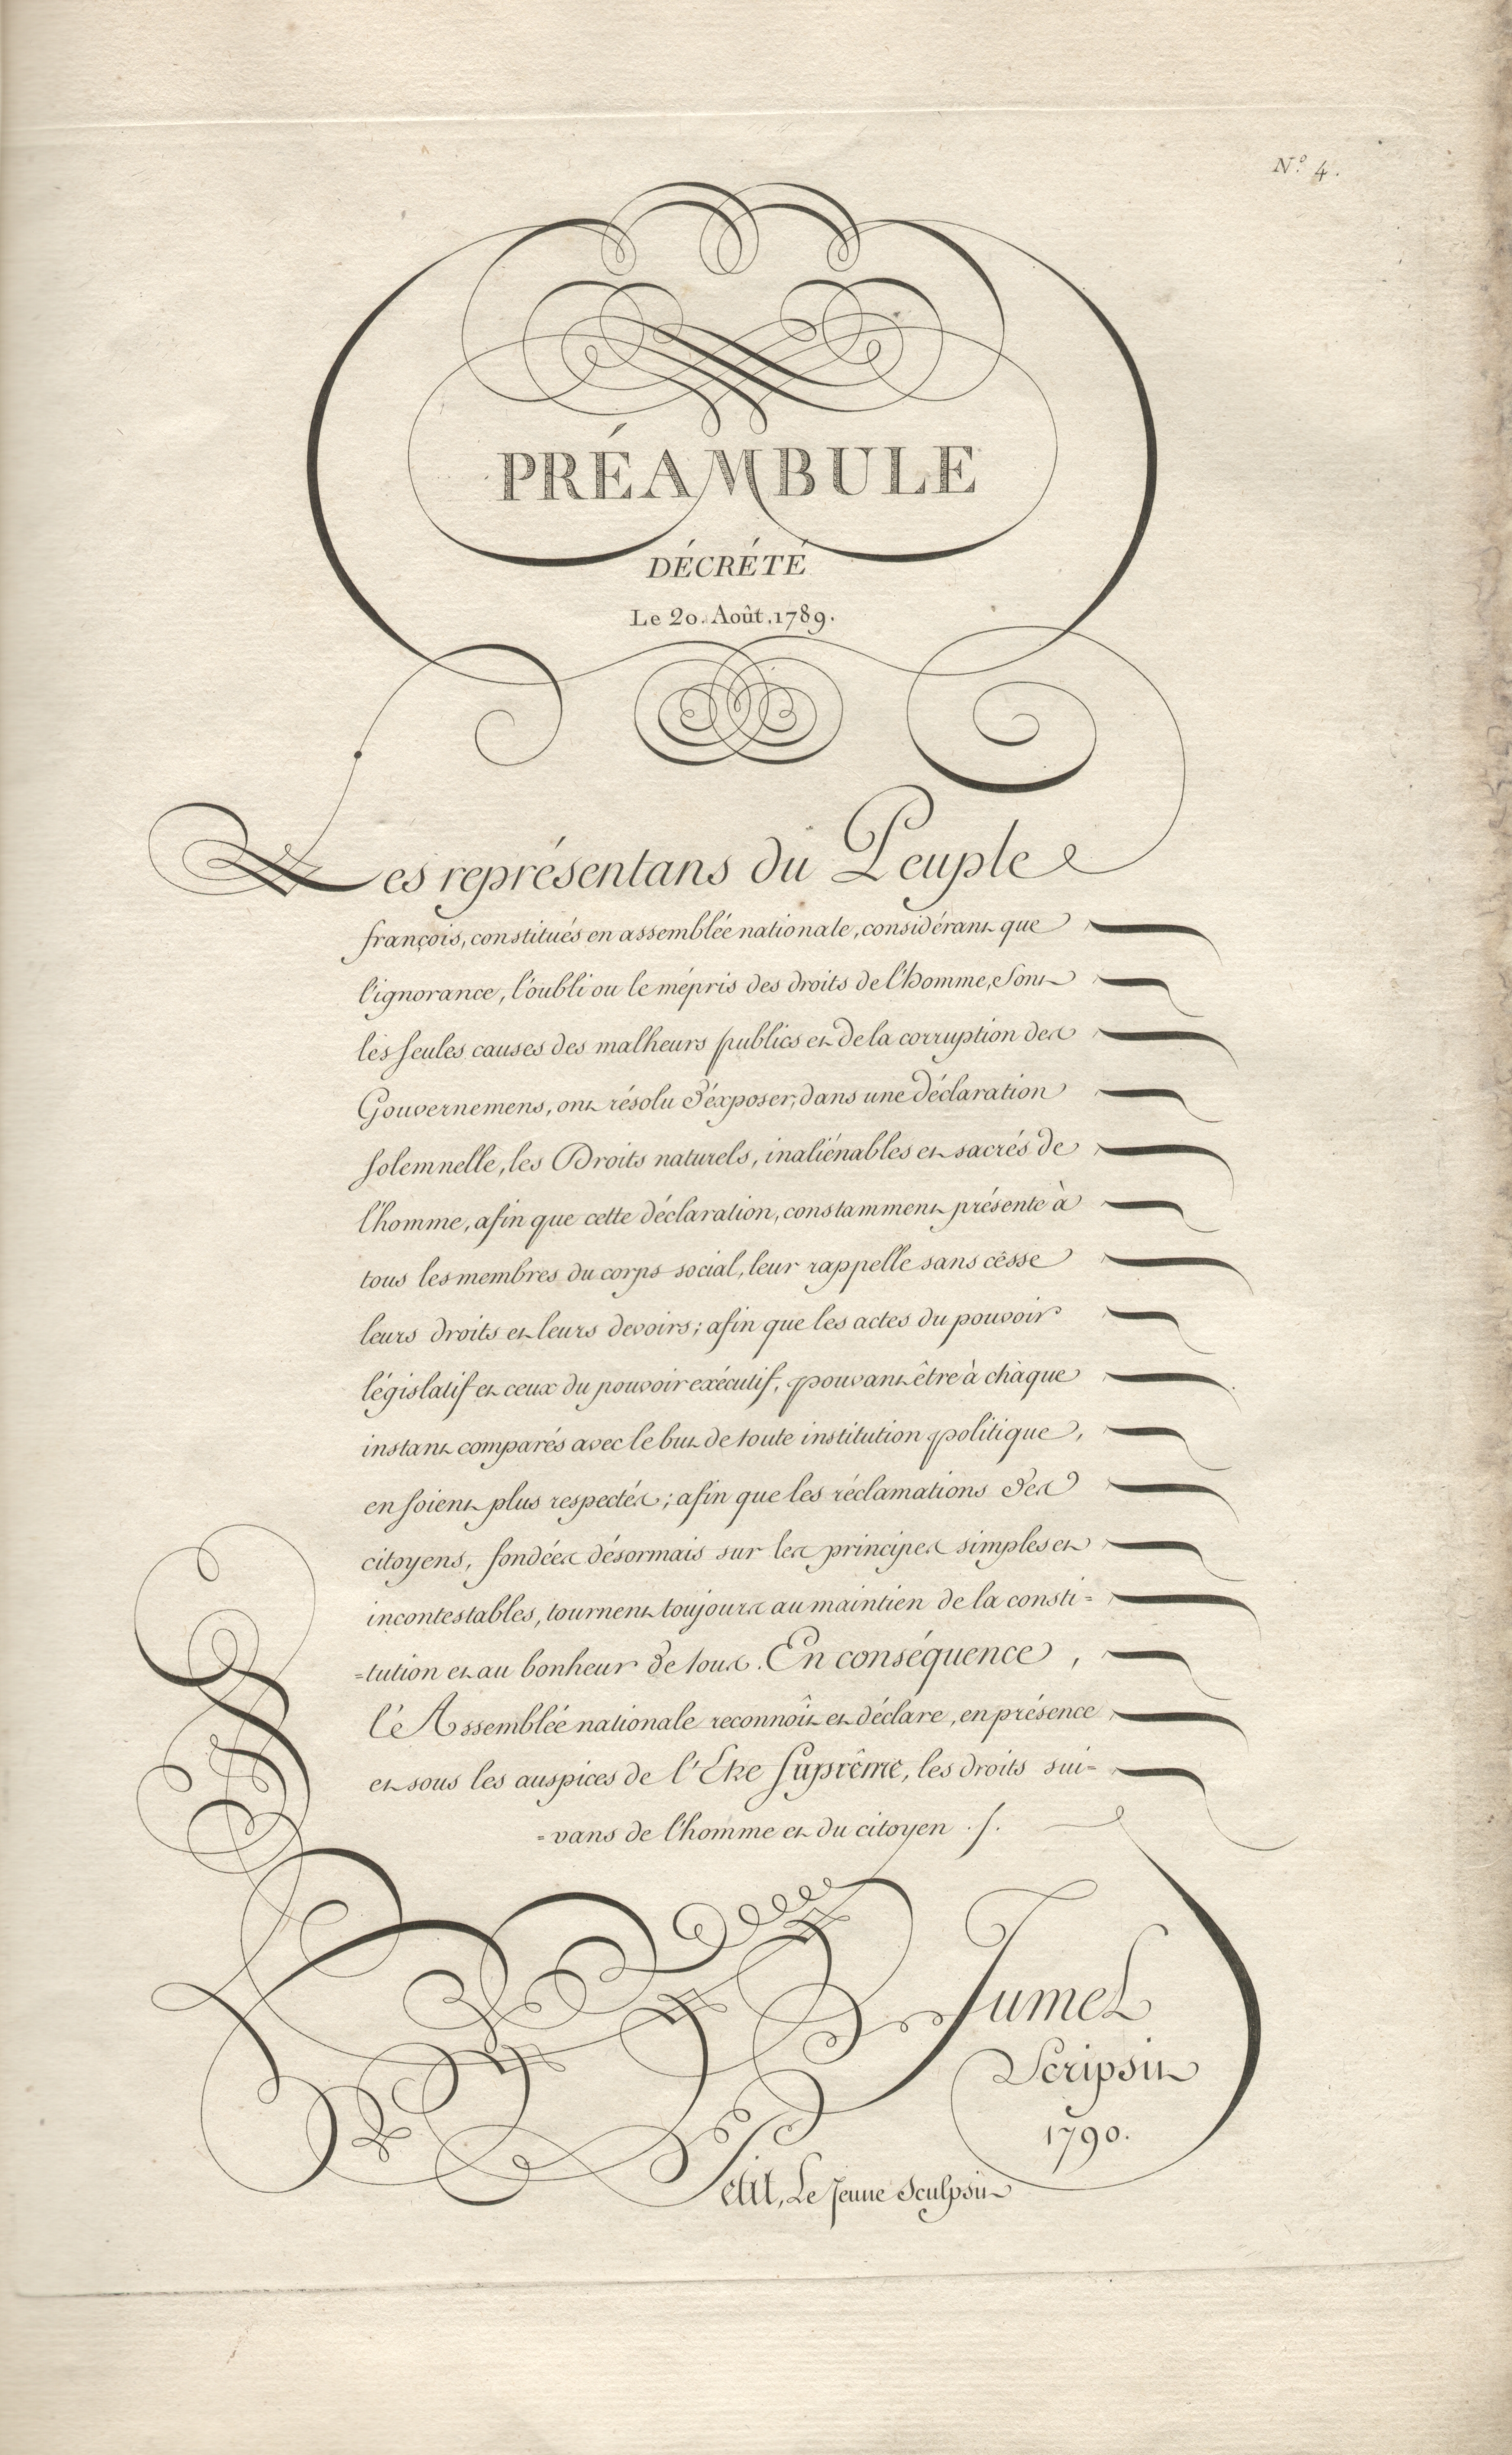 N.º 4.
PRÉAMBULE
DÉCRÉTÉ
Le 20. Août. 1789.
Les représentans du Peuple
françois, constitués en assemblée nationale, considérant que
l'ignorance, l'oubli ou le mépris des droits de l'homme, Sont
les seules causes des malheurs publics et de la corruption des
Gouvernemens, ont résolu d'éxposer, dans une déclaration
solemnelle, les Droits naturels, inaliénables et sacrés de
l'homme, afin que cette déclaration, constamment présente à
tous les membres du corps social, leur rappelle sans césse
leurs droits et leurs devoirs; afin que les actes du pouvoir
législatif et ceux du pouvoir exécutif, pouvant être à chaque
instant comparés avec le but de toute institution politique,
en soient plus respectés; afin que les réclamations des
citoyens, fondées désormais sur les principes simples et
incontestables, tournent toujours au maintien de la consti=
=tution et au bonheur de tous. En conséquence,
l'Assemblée nationale reconnoît et déclare, en présence
et sous les auspices de l'Etre Suprême, les droits sui=
=vans de l'homme et du citoyen ./.
Jumel
Scripsit
1790.
Petit, Le Jeune Sculpsit